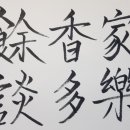 餘香家
談多樂